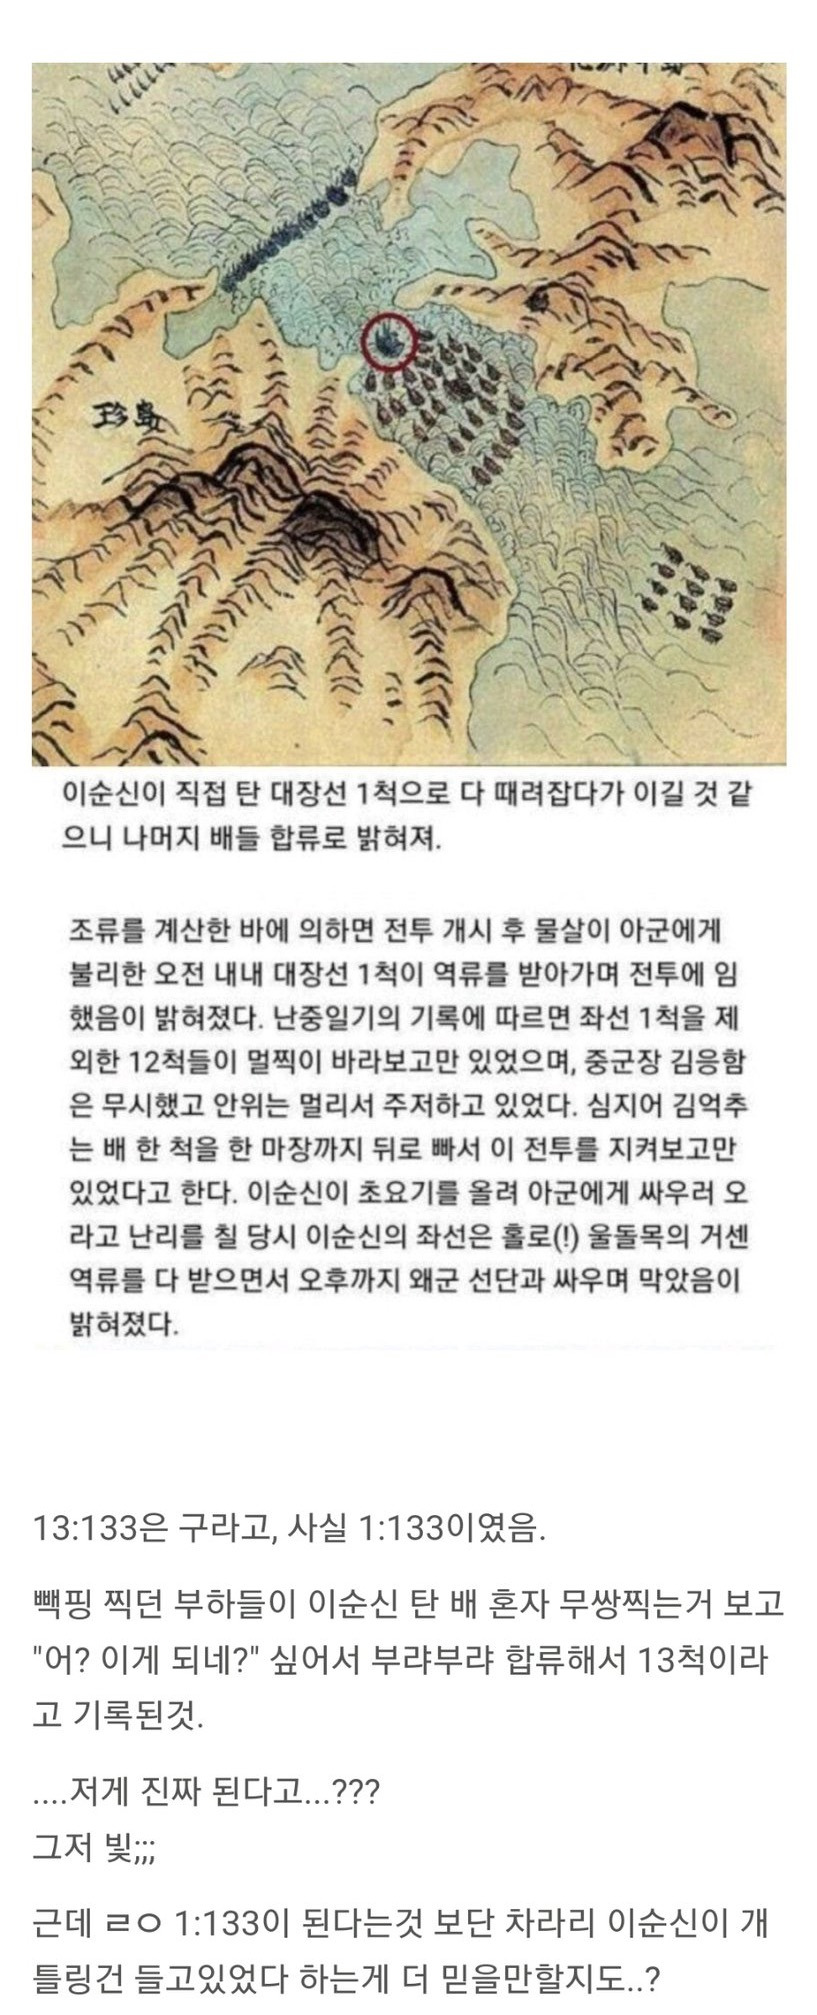 珍島
이순신이 직접 탄 대장선 1척으로 다 때려잡다가 이길 것 같
으니 나머지 배들 합류로 밝혀져.
조류를 계산한 바에 의하면 전투 개시 후 물살이 아군에게
불리한 오전 내내 대장선 1척이 역류를 받아가며 전투에 임
했음이 밝혀졌다. 난중일기의 기록에 따르면 좌선 1척을 제
외한 12척들이 멀찍이 바라보고만 있었으며, 중군장 김응함
은 무시했고 안위는 멀리서 주저하고 있었다. 심지어 김억추
는 배 한 척을 한 마장까지 뒤로 빠서 이 전투를 지켜보고만
있었다고 한다. 이순신이 초요기를 올려 아군에게 싸우러 오
라고 난리를 칠 당시 이순신의 좌선은 홀로(!) 울돌목의 거센
역류를 다 받으면서 오후까지 왜군 선단과 싸우며 막았음이
밝혀졌다.
13:133은 구라고, 사실 1:133이였음.
빽핑 찍던 부하들이 이순신 탄 배 혼자 무쌍찍는거 보고
"어? 이게 되네?" 싶어서 부랴부랴 합류해서 13척이라
고 기록된것.
....저게 진짜 된다고...???
그저 빛;;;
근데 ㄹㅇ 1:133이 된다는것 보단 차라리 이순신이 개
틀링건 들고있었다 하는게 더 믿을만할지도..?